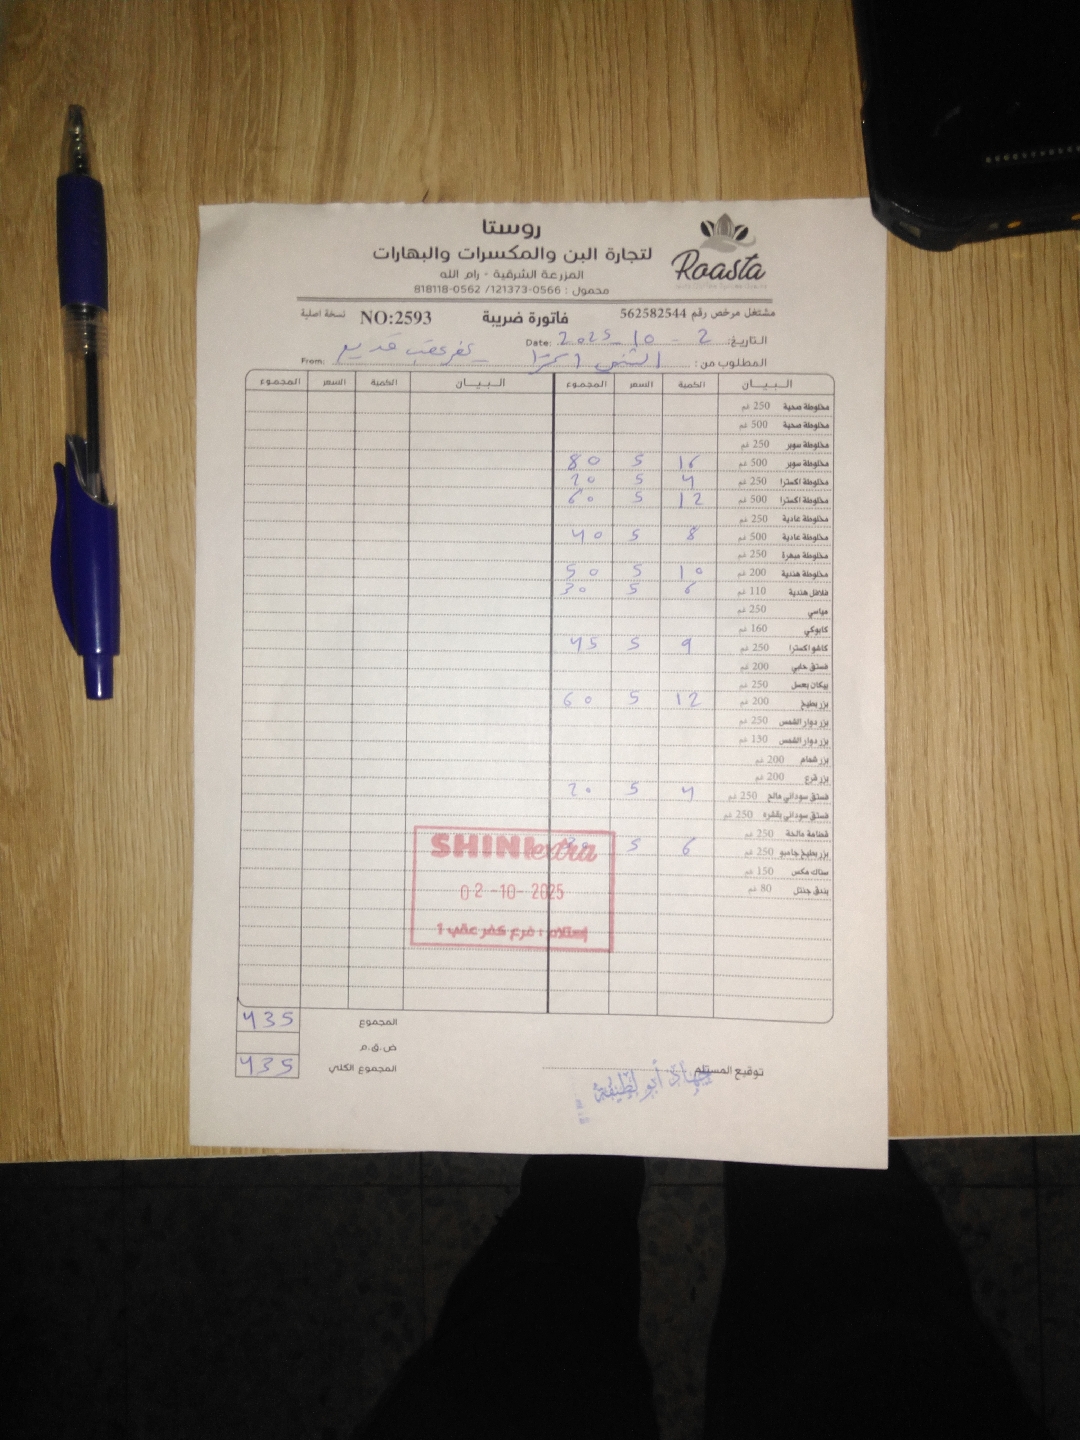 روستا
Roasta
لتجارة البن والمكسرات والبهارات
المزرعة الشرقية - رام الله
محمول : 0566-121373/ 0562-818118
مشتغل مرخص رقم 562582544 فاتورة ضريبة NO:2593 نسخة اصلية
التاريخ: 2 - 10 - 2025 Date:
المطلوب من: الشني اكسترا كفر عقب قديم From:
البيــان الكمية السعر المجموع البيــان الكمية السعر المجموع
مخلوطة صحية 250 غم
مخلوطة صحية 500 غم
مخلوطة سوبر 250 غم
مخلوطة سوبر 500 غم 16 5 80
مخلوطة اكسترا 250 غم 4 5 20
مخلوطة اكسترا 500 غم 12 5 60
مخلوطة عادية 250 غم
مخلوطة عادية 500 غم 8 5 40
مخلوطة مبهرة 250 غم
مخلوطة هندية 200 غم 10 5 50
فلافل هندية 110 غم 6 5 30
مياسي 250 غم
كابوكي 160 غم
كاشو اكسترا 250 غم 9 5 45
فستق حلبي 200 غم
بيكان بعسل 250 غم
بزر بطيخ 200 غم 12 5 60
بزر دوار الشمس 250 غم
بزر دوار الشمس 130 غم
بزر شمام 200 غم
بزر قرع 200 غم
فستق سوداني مالح 250 غم 4 5 20
فستق سوداني بقشره 250 غم
قضامة مالحة 250 غم
بزر بطيخ جامبو 250 غم 6 5 30
سناك مكس 150 غم
بندق جنتل 80 غم
SHINI extra
02-10-2025
إستلام : فرع كفر عقب 1
المجموع 435
ض.ق.م
المجموع الكلي 435
توقيع المستلم
جهاد أبو لطيفة